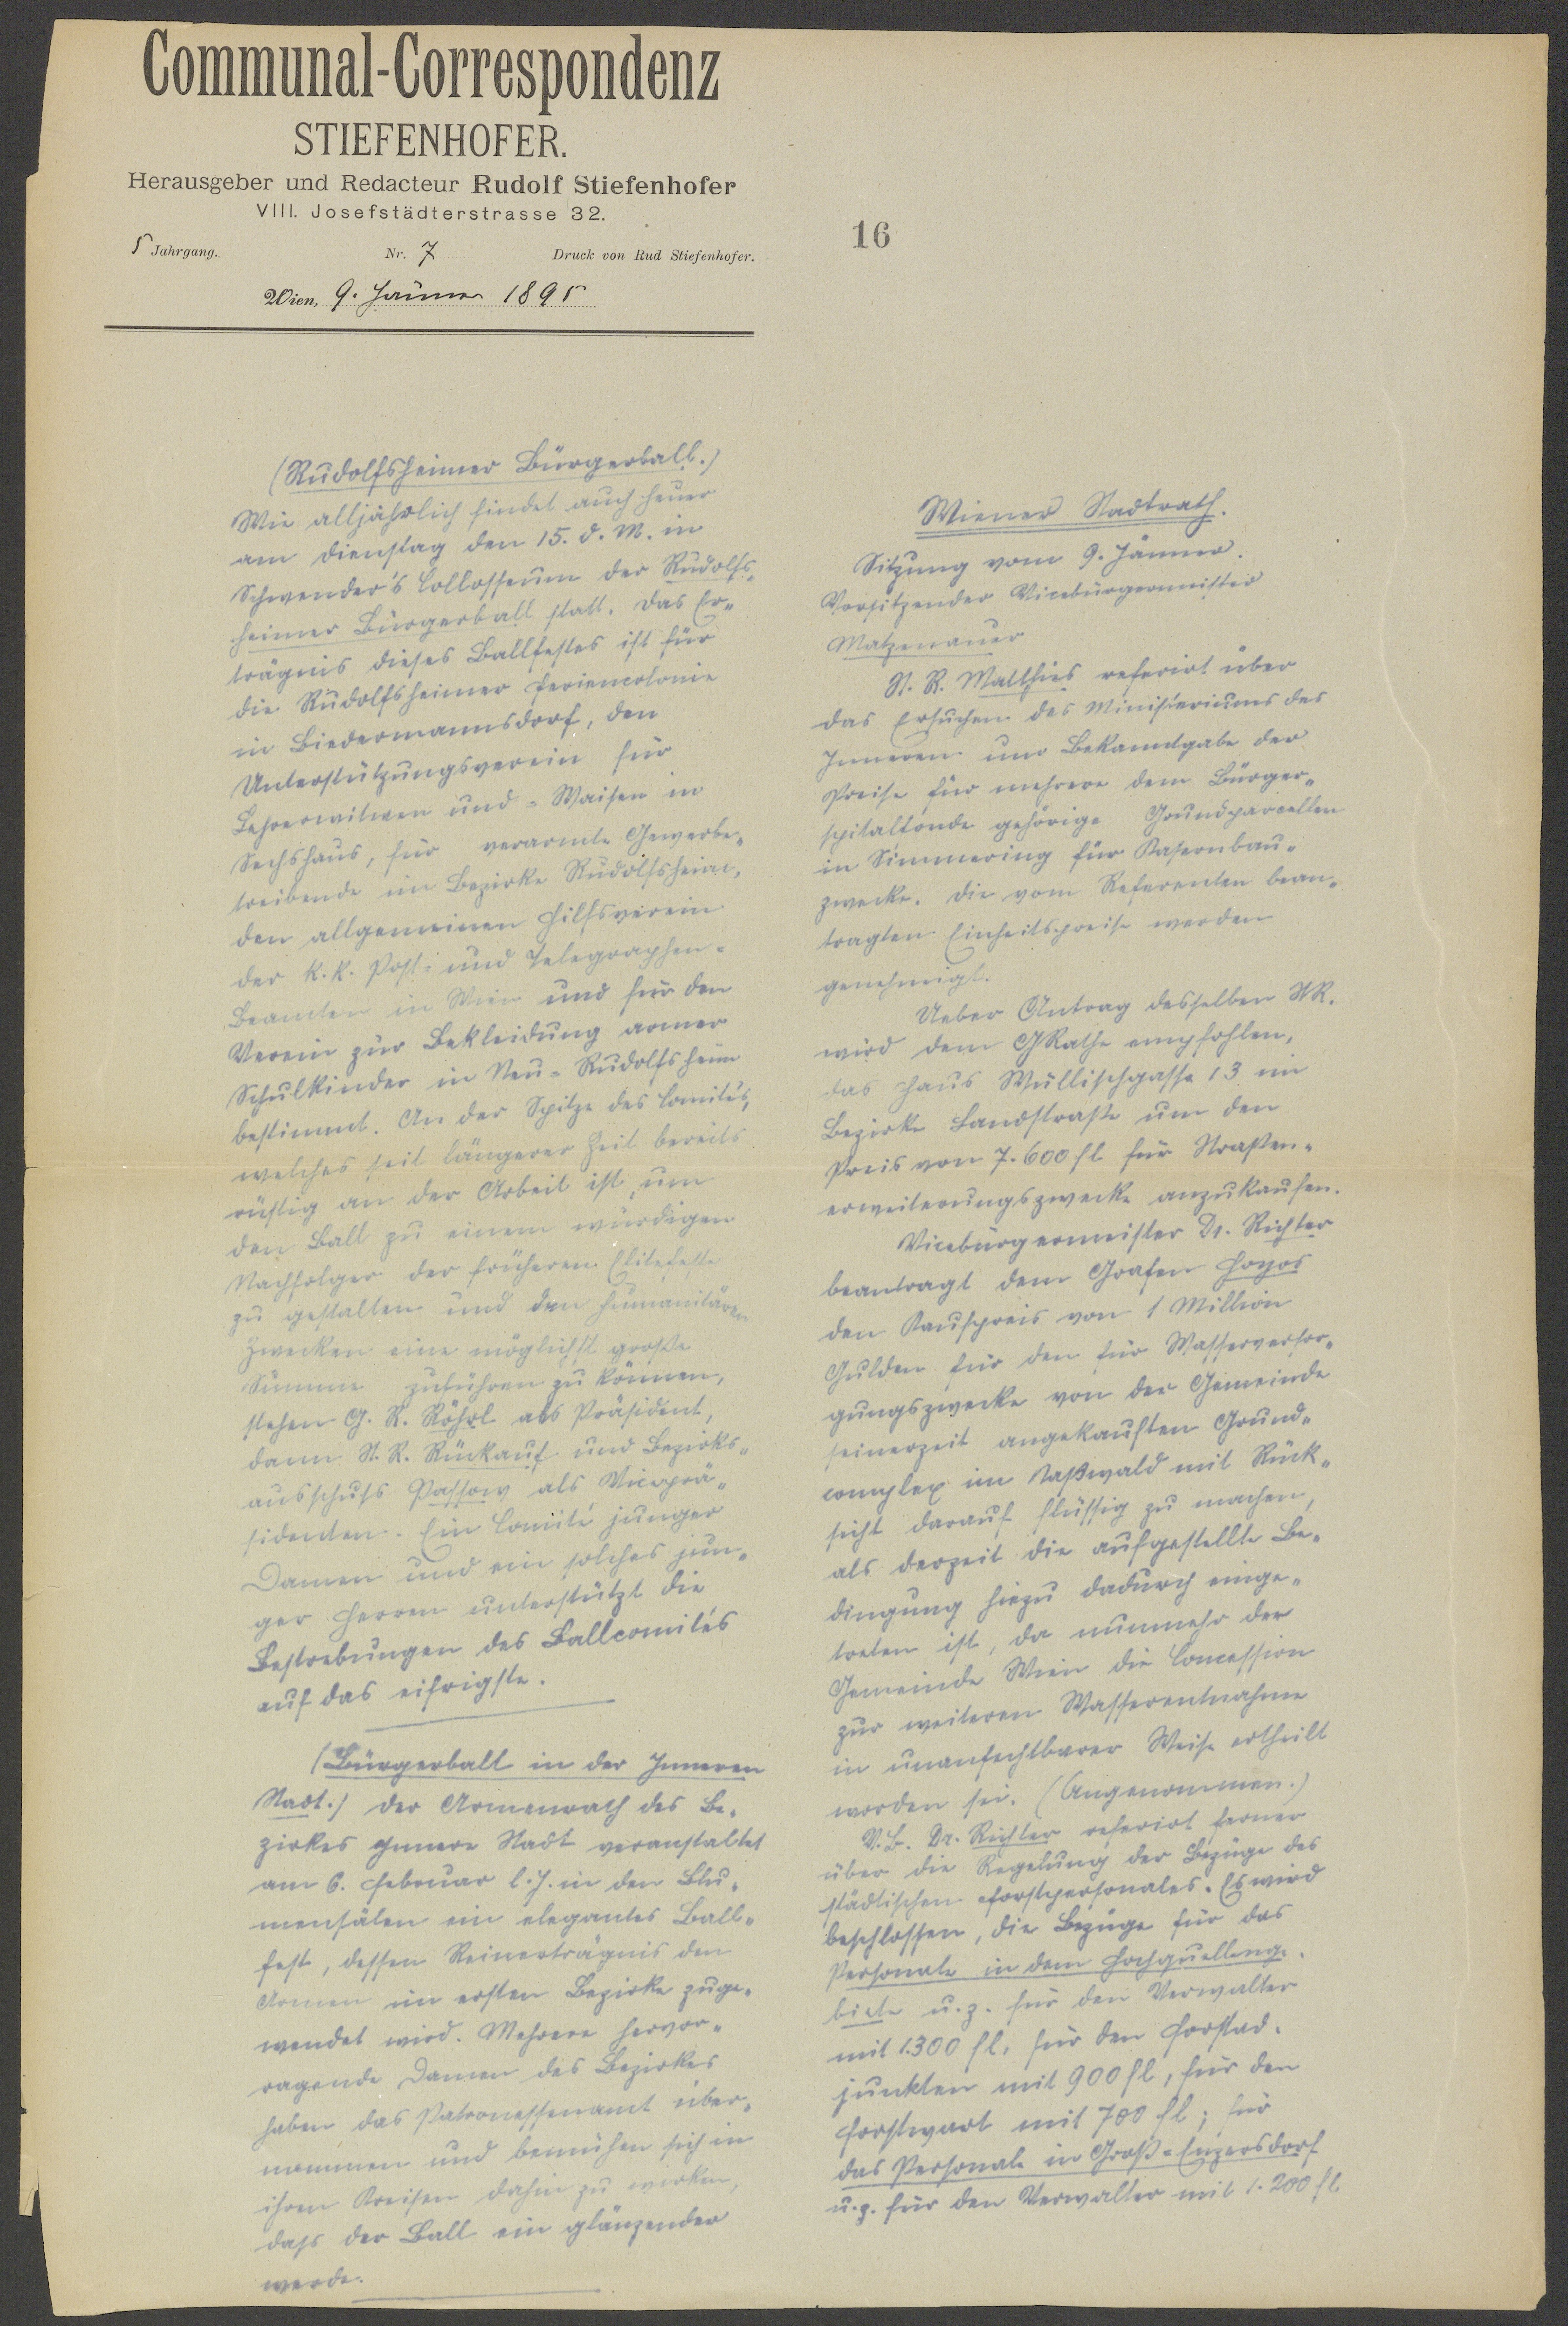 Communal-Correspondenz
STIEFENHOFER.
Herausgeber und Redacteur Rudolf Stiefenhofer
VIII. Josefstädterstrasse 32.
5 Jahrgang. Nr. 7 Druck von Rud Stiefenhofer.
Wien, 9. Jänner 1895
(Rudolfsheimer Bürgerball.)
Wie alljährlich findet auch heuer
am Dienstag den 15. d. M. in
Schwender's Collosseum der Rudolfs„
heimer Bürgerball statt. Das Er„
trägnis dieses Ballfestes ist für
die Rudolfsheimer Feriencolonie
in Biedermannsdorf, den
Unterstützungsverein für
Lehrerwitwen und -Waisen in
Sechshaus, für verarmte Gewerbe„
treibende im Bezirke Rudolfsheim,
den allgemeinen Hilfsverein
der k. k. Post- und Telegraphen-
Beamten in Wien und für den
Verein zur Bekleidung armer
Schulkinder in Neu-Rudolfsheim
bestimmt. An der Spitze des Comités,
welches seit längerer Zeit bereits
rüstig an der Arbeit ist, um
den Ball zu einem würdigen
Nachfolger der früheren Elitefeste
zu gestalten und den humanitären
Zwecken eine möglichst große
Summe zuführen zu können,
stehen G. R. Röhrl als Präsident,
dann St. R. Rückauf und Bezirks„
ausschuss Passow als Viceprä„
sidenten. Ein Comité junger
Damen und ein solches jun„
ger Herren unterstützt die
Bestrebungen des Ballcomités
auf das eifrigste.
(Bürgerball in der Inneren
Stadt.) Der Armenrath des Be„
zirkes Innere Stadt veranstaltet
am 6. Februar l. J. in den Blu„
mensälen ein elegantes Ball„
fest, dessen Reinerträgnis den
Armen im ersten Bezirke zuge„
wendet wird. Mehrere hervor„
ragende Damen des Bezirkes
haben das Patronessenamt über„
nommen und bemühen sich in
ihren Kreisen dahin zu wirken,
dass der Ball ein glänzender
werde.
16
Wiener Stadtrath.
Sitzung vom 9. Jänner.
Vorsitzender Vicebürgermeister
Matzenauer
St. R. Matthies referirt über
das Ersuchen des Ministeriums des
Inneren um Bekanntgabe der
Preise für mehrere dem Bürger„
spitalfonde gehörige Grundparcellen
in Simmering für Kasernbau„
zwecke. Die vom Referenten bean„
tragten Einheitspreise werden
genehmigt.
Ueber Antrag desselben StR.
wird dem GRathe empfohlen,
das Haus Wällischgasse 13 im
Bezirke Landstraße um den
Preis von 7.600 fl für Straßen„
erweiterungszwecke anzukaufen.
Vicebürgermeister Dr. Richter
beantragt dem Grafen Hoyos
den Kaufpreis von 1 Million
Gulden für den für Wasserversor„
gungszwecke von der Gemeinde
seinerzeit angekauften Grund„
complex im Naßwald mit Rück„
sicht darauf flüssig zu machen,
als derzeit die aufgestellte Be„
dingung hiezu dadurch einge„
treten ist, da nunmehr der
Gemeinde Wien die Concession
zur weiteren Wasserentnahme
in unanfechtbarer Weise ertheilt
worden sei. (Angenommen.)
V.B. Dr. Richter referirt ferner
über die Regelung der Bezüge des
städtischen Forstpersonales. Es wird
beschlossen, die Bezüge für das
Personale in dem Hochquellenge„
biete u. z. für den Verwalter
mit 1.300 fl, für den Forstad„
junkten mit 900 fl, für den
Forstwart mit 700 fl; für
das Personale in Groß-Enzersdorf
u. z. für den Verwalter mit 1.200 fl